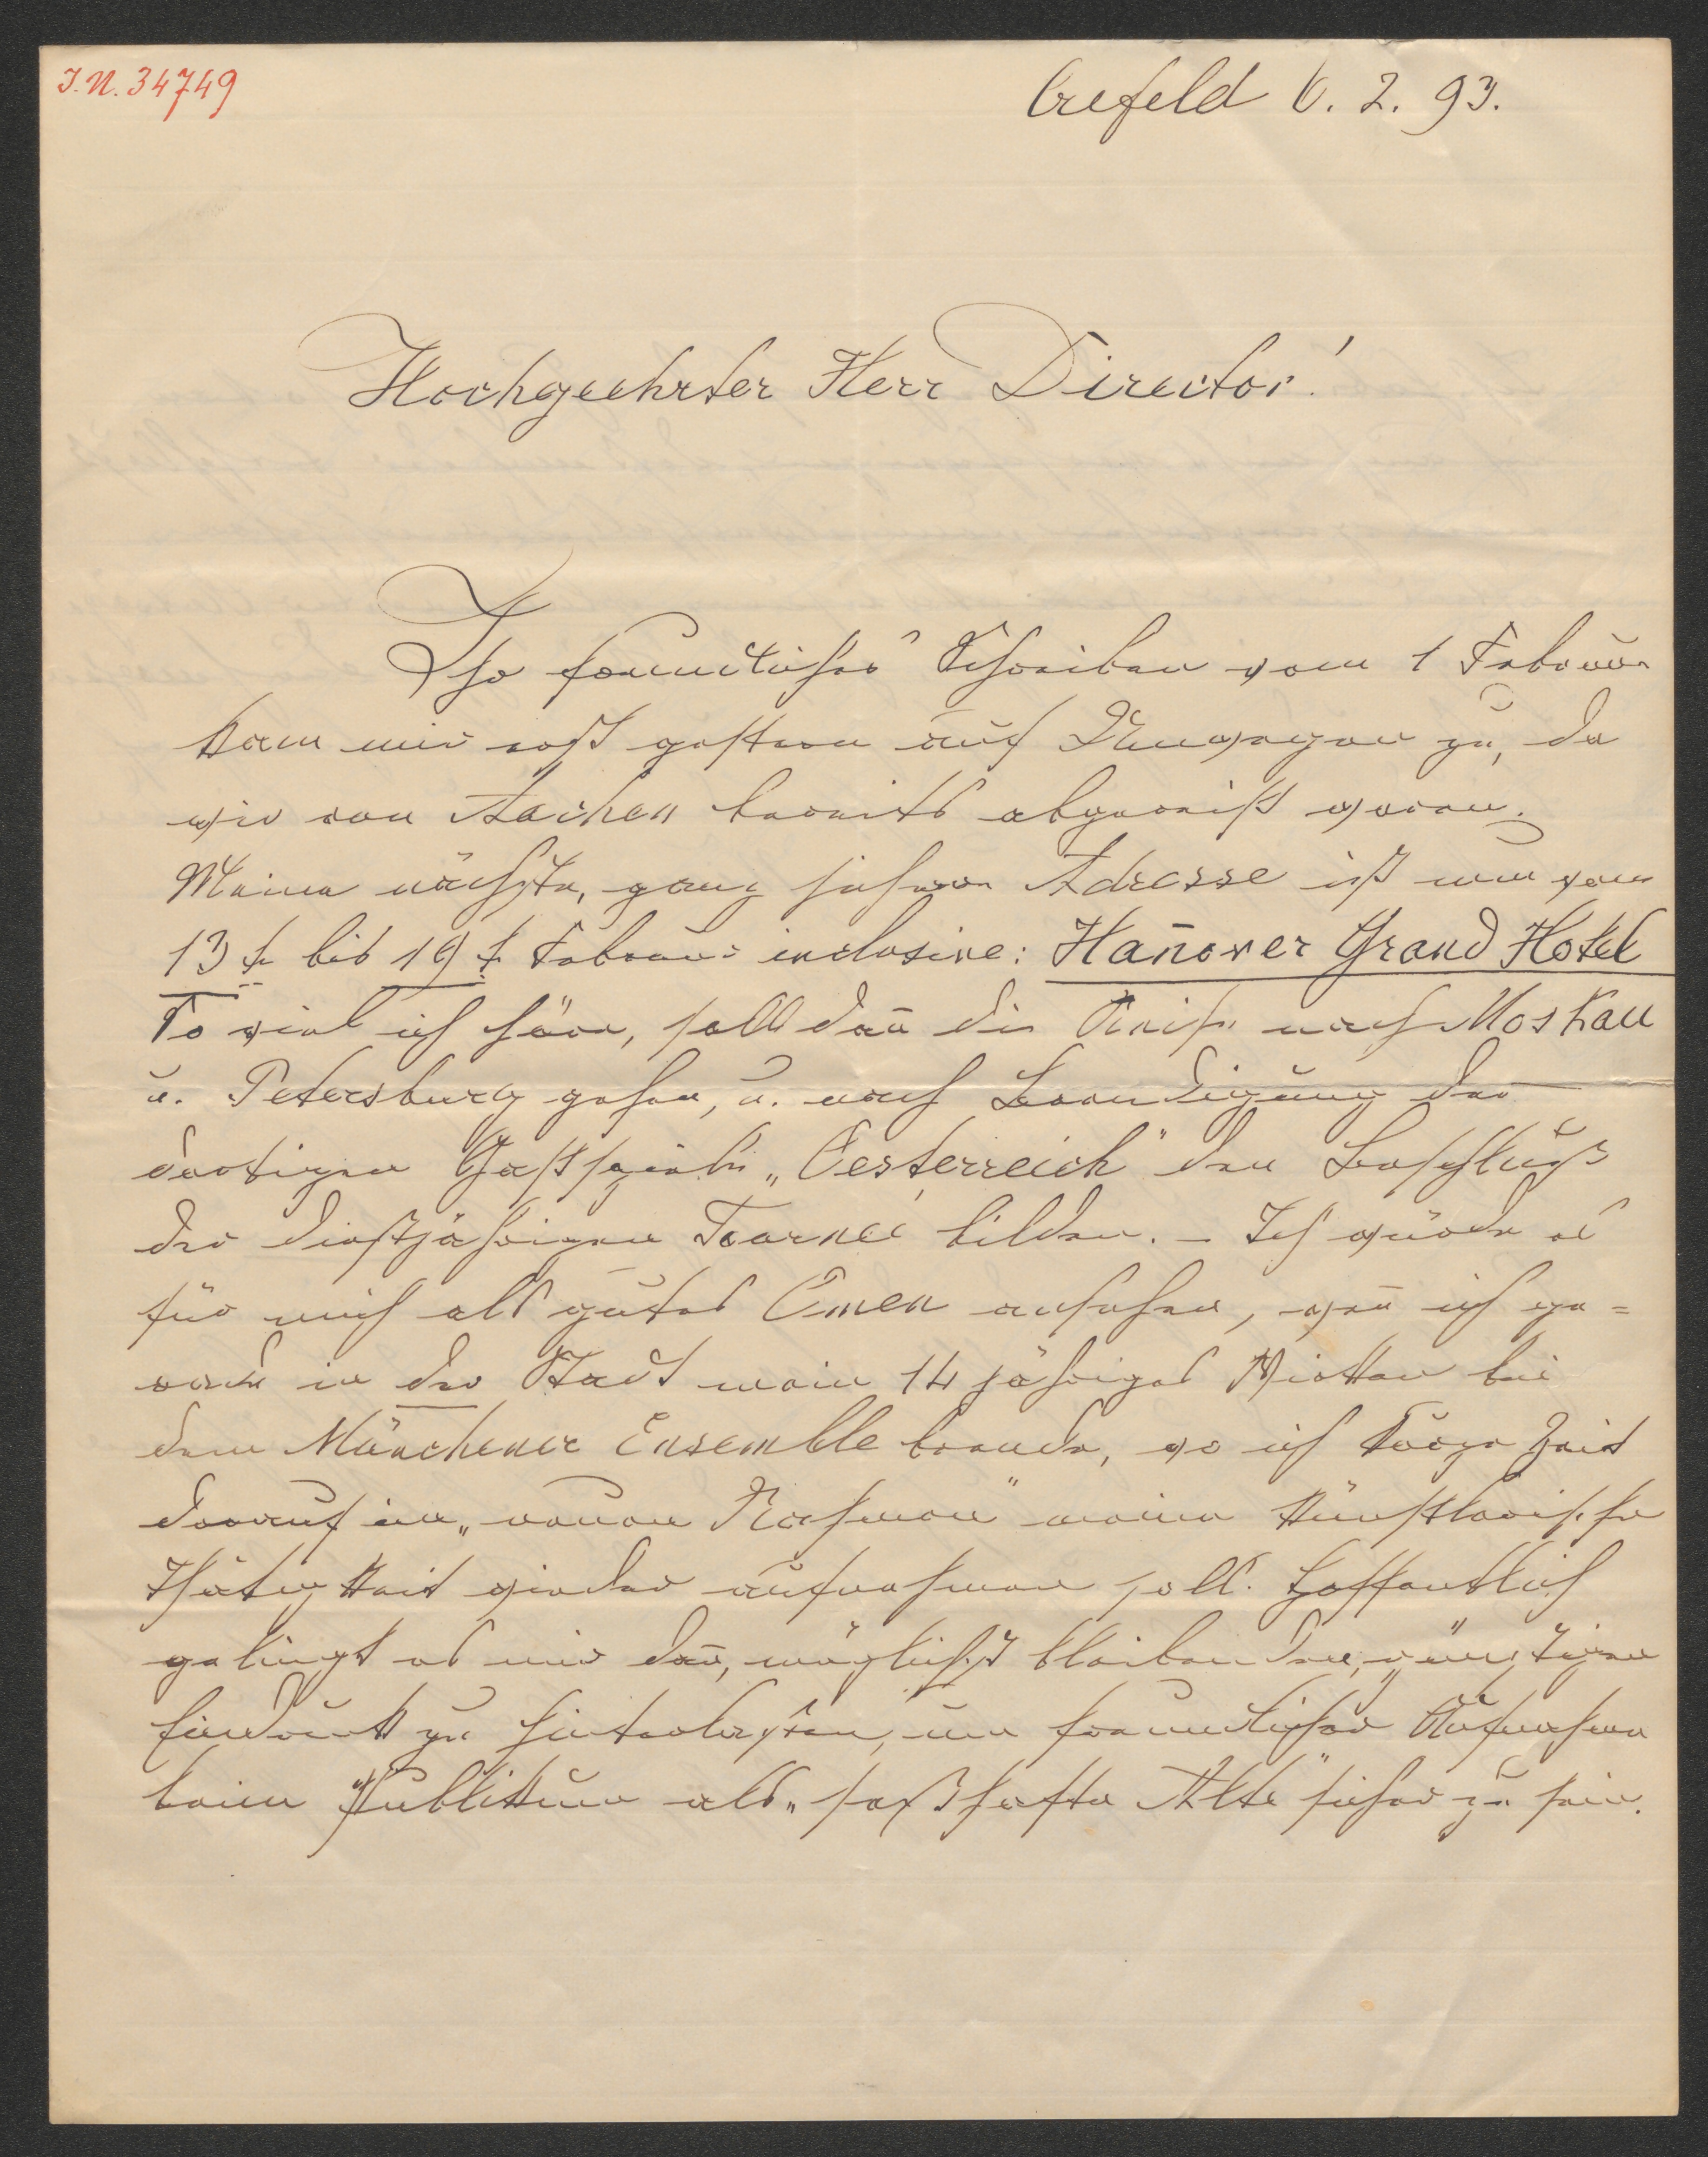 I.N. 34749
Crefeld 6. 2. 93.
Hochgeehrter Herr Director!
Ihr freundliches Schreiben vom 1 Februar
kam mir erst gestern auf Umwegen zu, da
wir von Aachen bereits abgereist waren.
Meine nächste, ganz sichere Adresse ist nun vom
13t. bis 19t. Februar inclusive: Hañover Grand Hotel
So viel ich höre, soll dañ die Reise nach Moskau
u. Petersburg gehen, u. nach Beendigung des
dortigen Gastspiels „Oesterreich" den Beschluß
der diesjährigen Tournée bilden. – Ich würde es
für mich als gutes Omen ansehen, weñ ich ge=
rade in der Stadt mein 14 jähriges Wirken bei
dem Münchener Ensemble beende, wo ich kurze Zeit
darauf im „neuen Rahmen" meine künstlerische
Thätigkeit wieder aufnehmen soll. Hoffentlich
gelingt es mir dañ, möglichst bleibenden, günstigen
Eindruck zu hinterlassen, um freundlicher Aufnahme
beim Publikum als „seßhafte Alte" sicher zu sein.